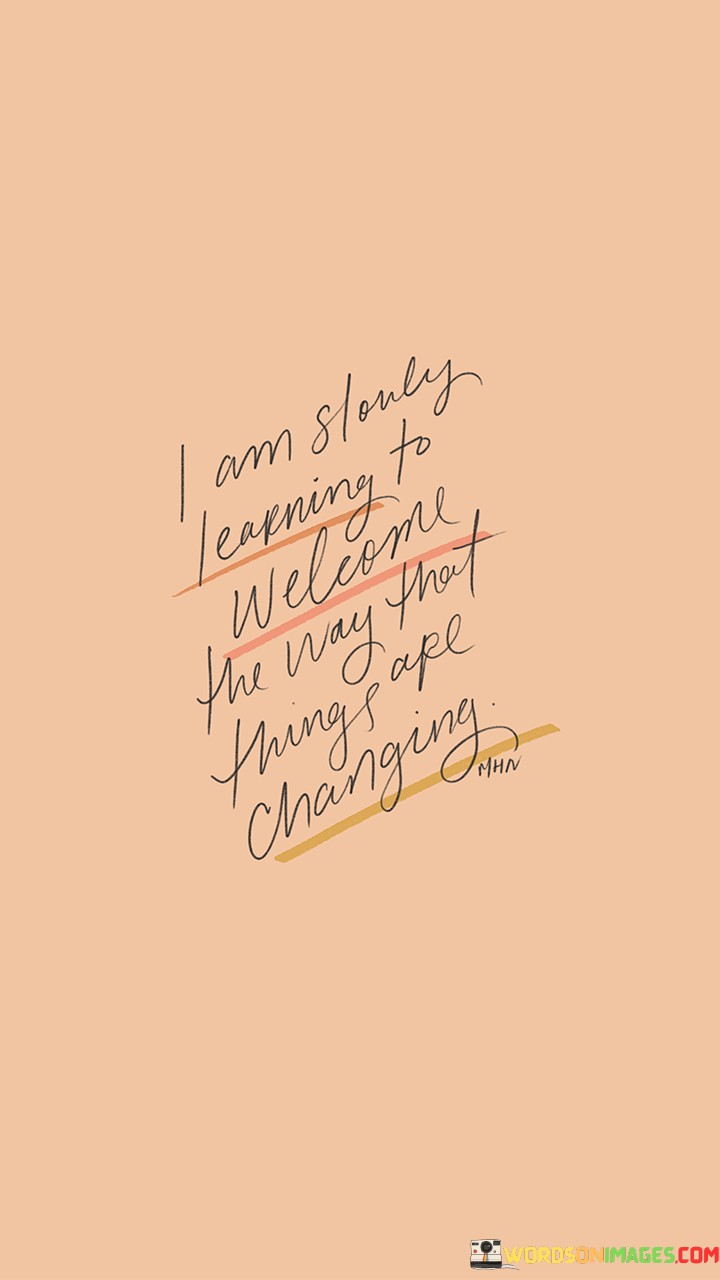 I am slowly
learning to
Welcome
the way that
things are
changing.
MHN
WORDSONIMAGES.COM